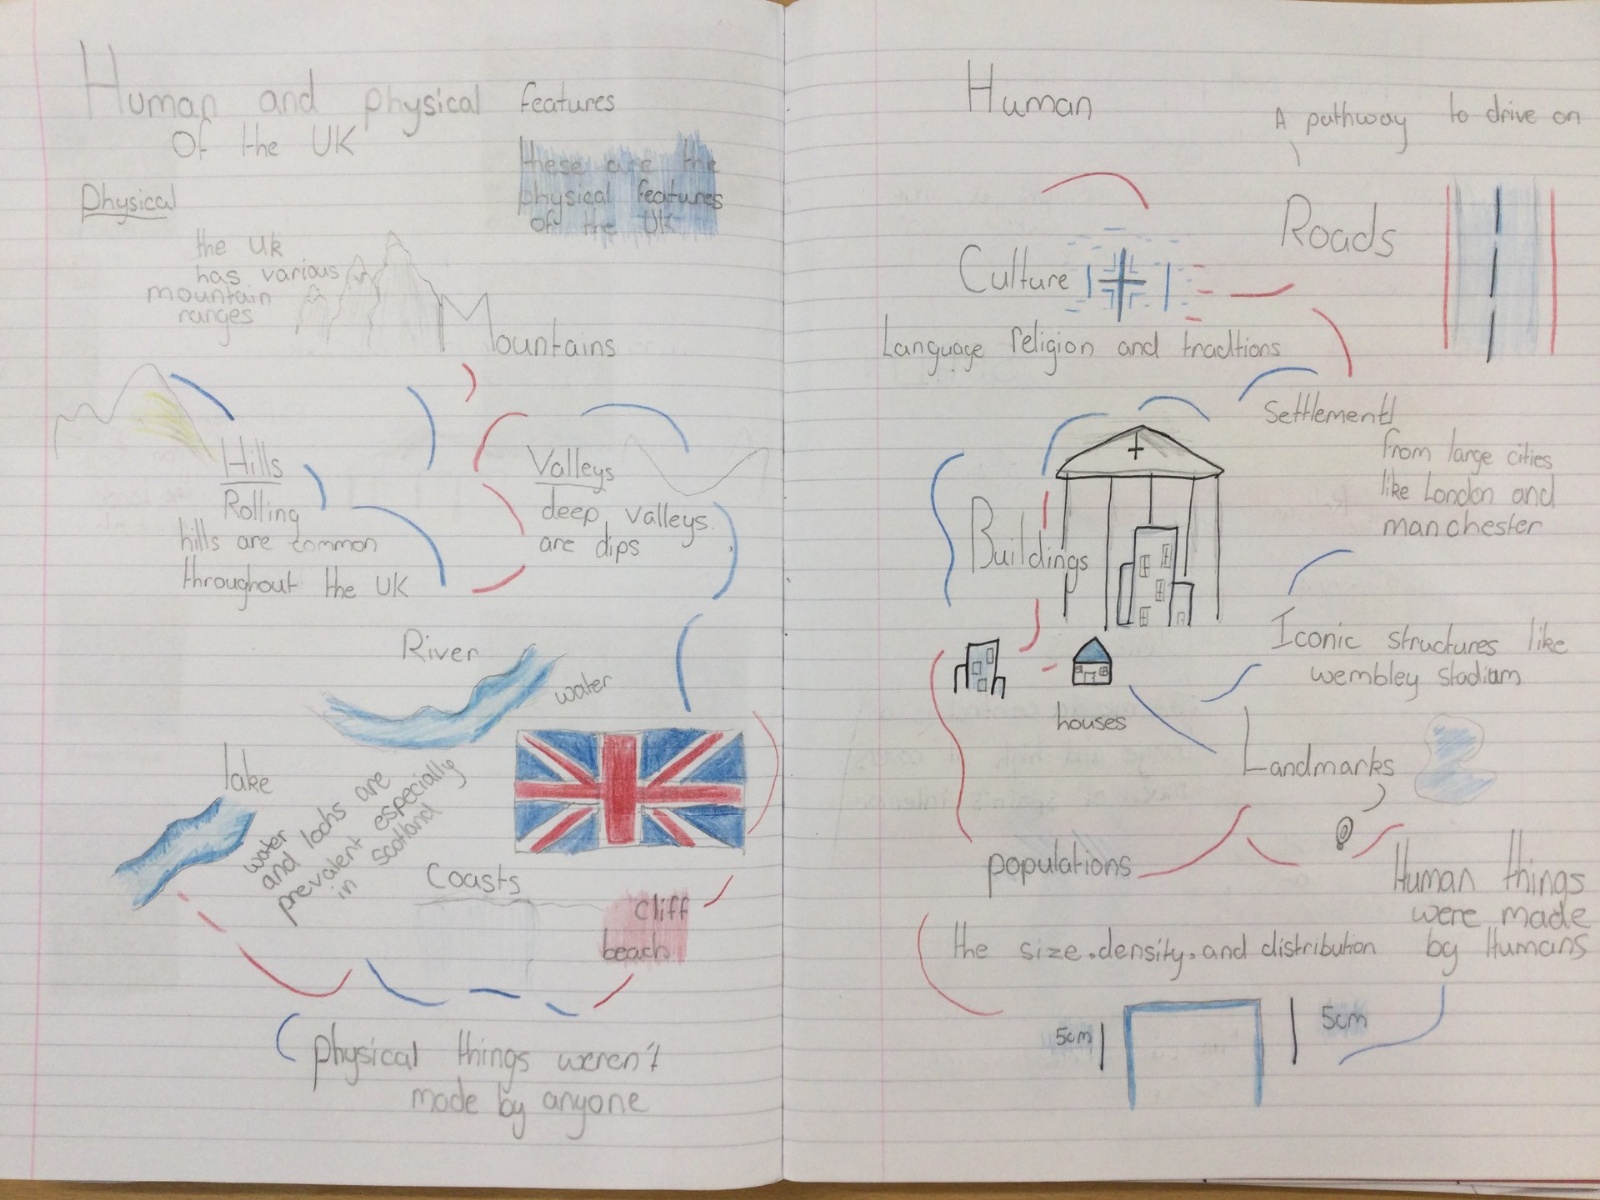 Human and physical features
Of the UK
these are the
physical features
of the UK
Physical
the UK
has various
mountain
ranges
Mountains
Hills
Rolling
hills are common
throughout the UK
Valleys
deep valleys.
are dips
River
water
lake
water
and lochs are
prevalent especially
in scotland
Coasts
cliff
beach
physical things weren't
made by anyone
Human
A pathway to drive on
Roads
Culture
Language religion and tradtions
Settlements
from large cities
like London and
manchester
Buildings
houses
Iconic structures like
wembley stadium
Landmarks
populations
Human things
were made
by Humans
the size.density.and distribution
5cm
5cm